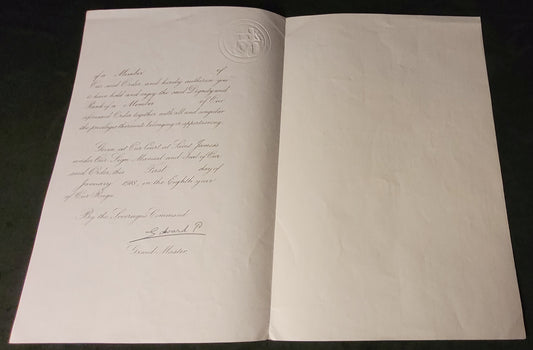 of a Member of
Our said Order and hereby authorise you
to have hold and enjoy the said Dignity and
Rank of a Member of Our
aforesaid Order together with all and singular
the privileges thereunto belonging or appertaining.
Given at Our Court at Saint James's
under Our Sign Manual and Seal of Our
said Order this First day of
January 1918, in the Eighth year
of Our Reign.
By the Sovereign's Command.
Edward P
Grand Master.